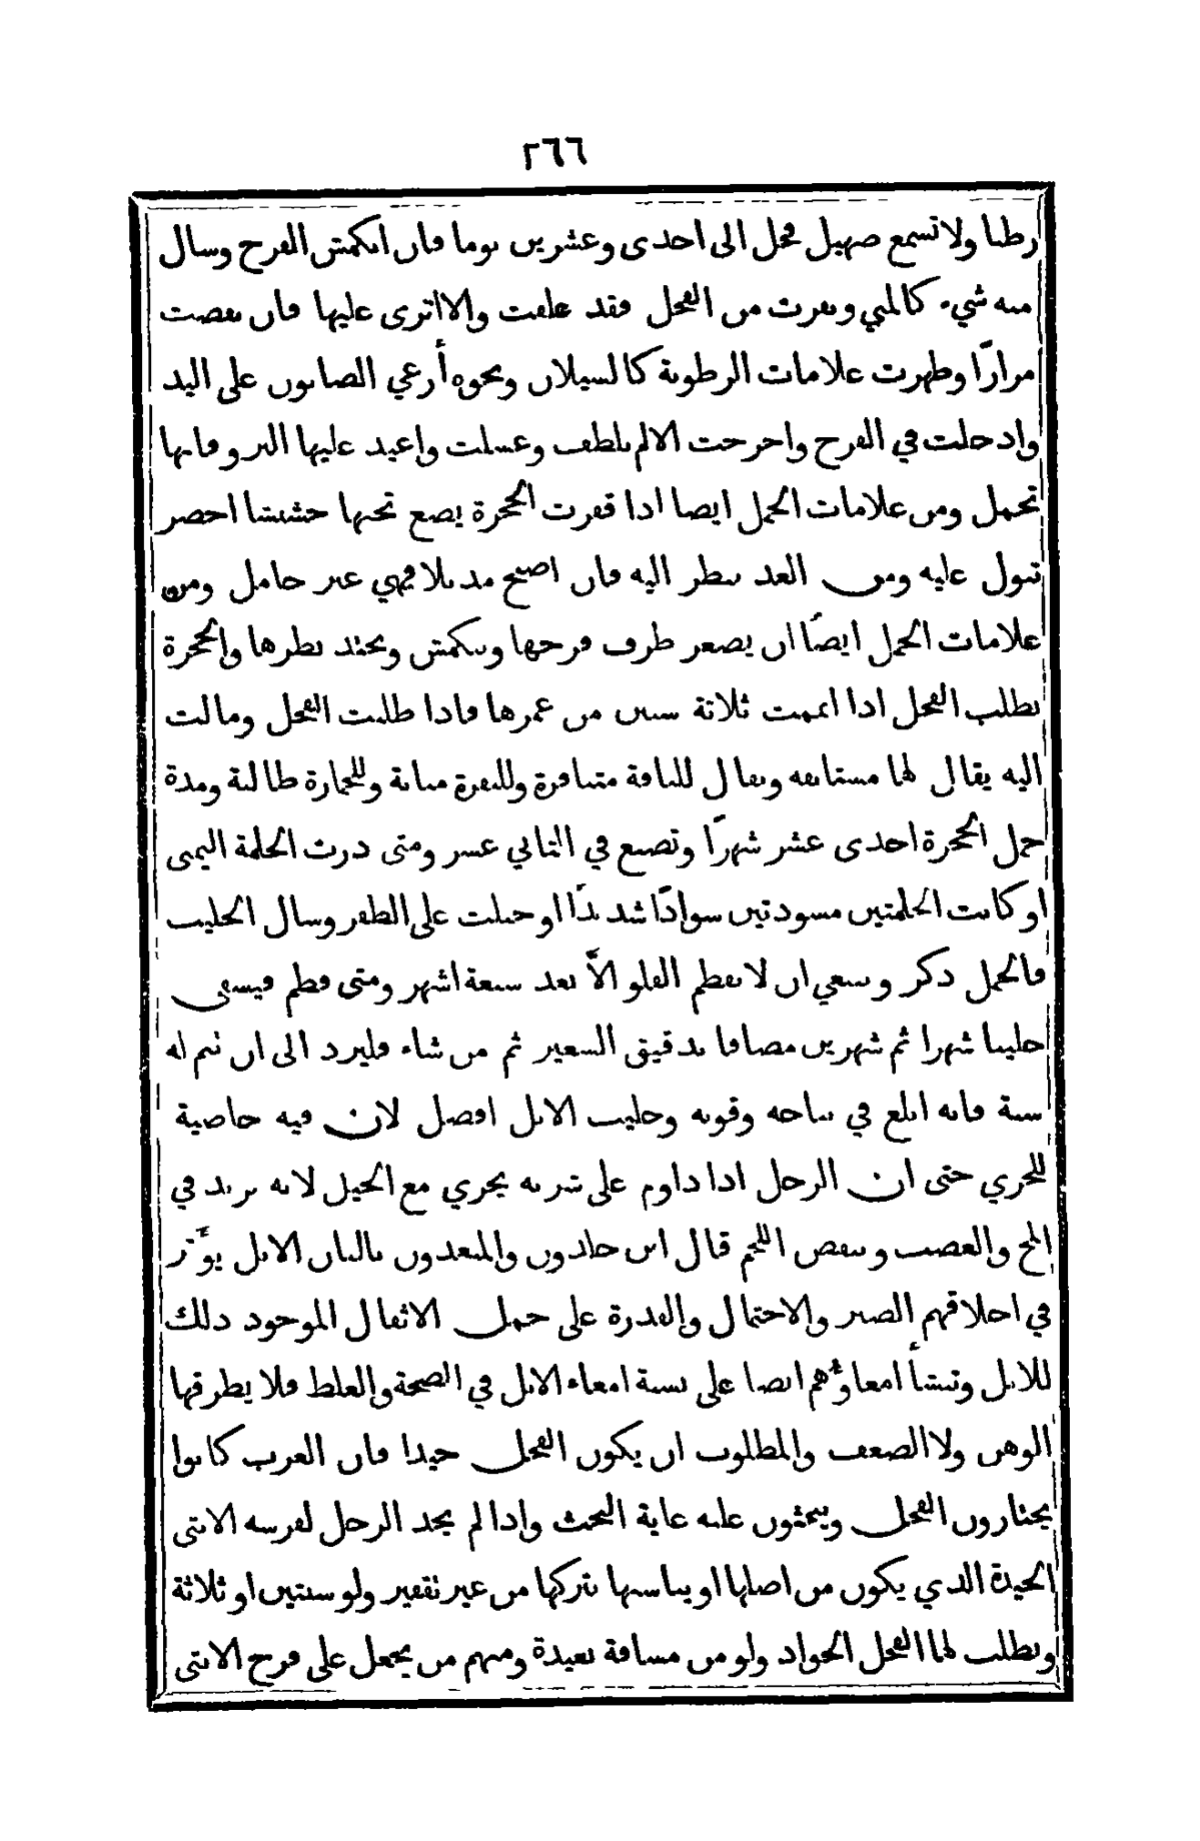 ٢٦٦
رطبا ولا تسمع صهيل فحل الى احدى وعشرين يوما فان انكمش الفرج وسال
منه شيء كالمني ونفرت من الفحل فقد علقت والا انزى عليها فان نفضت
مرارًا وظهرت علامات الرطوبة كالسيلان ونحوه أرغي الصابون على اليد
وادخلت في الفرج واخرجت الالم بلطف وغسلت واعيد عليها النزو فانها
تحمل ومن علامات الحمل ايضا اذا قفزت الحجرة يضع تحتها حشيشا اخضر
تبول عليه ومن الغد ينظر اليه فان اصبح مدبلا فهي غير حامل ومن
علامات الحمل ايضًا ان يصغر طرف فرجها وينكمش ويحتد نظرها والحجرة
تطلب الفحل اذا اتمت ثلاثة سنين من عمرها فاذا طلبت الفحل ومالت
اليه يقال لها مستانفه ويقال للناقة متنافرة وللبقرة مبانة وللحمارة طالبة ومدة
حمل الحجرة احدى عشر شهرًا وتضع في الثاني عسر ومتى درت الحلمة اليمنى
او كانت الحلمتين مسودتين سوادًا شديدًا او حلبت على الظفر وسال الحليب
فالحمل ذكر وينبغي ان لا يفطم الفلو الاّ بعد سبعة اشهر ومتى فطم فيسقى
حليبا شهرا ثم شهرين مضافا بدقيق الشعير ثم من شاء فليزد الى ان يتم له
سنة فانه ابلغ في نتاجه وقوته وحليب الابل افضل لان فيه خاصية
للجري حتى ان الرجل اذا داوم على شربه يجري مع الخيل لانه يزيد في
المخ والعصب وينقص اللحم قال ابن خلدون والمتغذون بالبان الابل يؤثر
في اخلاقهم الصبر والاحتمال والقدرة على حمل الاثقال الموجود ذلك
للابل وتنشأ امعاؤهم ايضا على نسبة امعاء الابل في الصحة والغلظ فلا يطرقها
الوهن ولا الضعف والمطلوب ان يكون الفحل جيدا فان العرب كانوا
يختارون الفحل ويبحثون عليه غاية البحث واذا لم يجد الرجل لفرسه الانثى
الجيدة الذي يكون من اصلها او يناسبها يتركها من غير تقفيز ولو سنتين او ثلاثة
ويطلب لها الفحل الجواد ولو من مسافة بعيدة ومنهم من يجعل على فرج الانثى